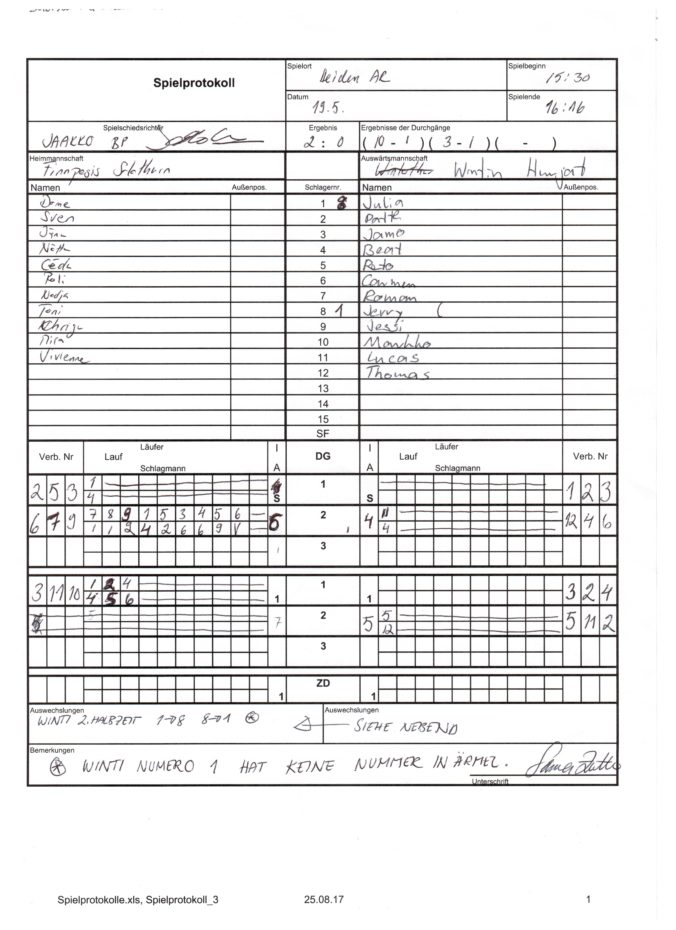 Spielprotokoll
Spielort
Heiden AR
Spielbeginn
15:30
Datum
19.5.
Spielende
16:16
Spielschiedsrichter
JAAKKO BP
Ergebnis
2 : 0
Ergebnisse der Durchgänge
( 10 - 1 ) ( 3 - 1 ) ( - )
Heimmannschaft
Auswärtsmannschaft
Namen Außenpos. Schlagernr. Namen Außenpos.
1 8 Julia
Sven 2
3 Jamo
4 Beat
5 Reto
6 Carmen
Nadja 7 Roman
Toni 8 1 Jerry (
9 Jessi
Mira 10
Vivienne 11 Lucas
12 Thomas
13
14
15
SF
Verb. Nr Lauf Läufer Schlagmann I A DG I A Lauf Läufer Schlagmann Verb. Nr
2 5 3 1 S 1 S 1 2 3
4
6 7 9 7 8 9 1 5 3 4 5 6 2 4 11 12 4 6
1 1 2 4 2 6 6 9 V 4
3
3 11 10 1 2 4 1 1 1 3 2 4
4 5 6
7 2 5 5 5 11 2
12
3
ZD
1 1
Auswechslungen
WINTI 2. HALBZEIT 1→8 8→1 *
Auswechslungen
SIEHE NEBEND
Bemerkungen
* WINTI NUMERO 1 HAT KEINE NUMMER IN ÄRMEL.
Unterschrift
Spielprotokolle.xls, Spielprotokoll_3 25.08.17 1